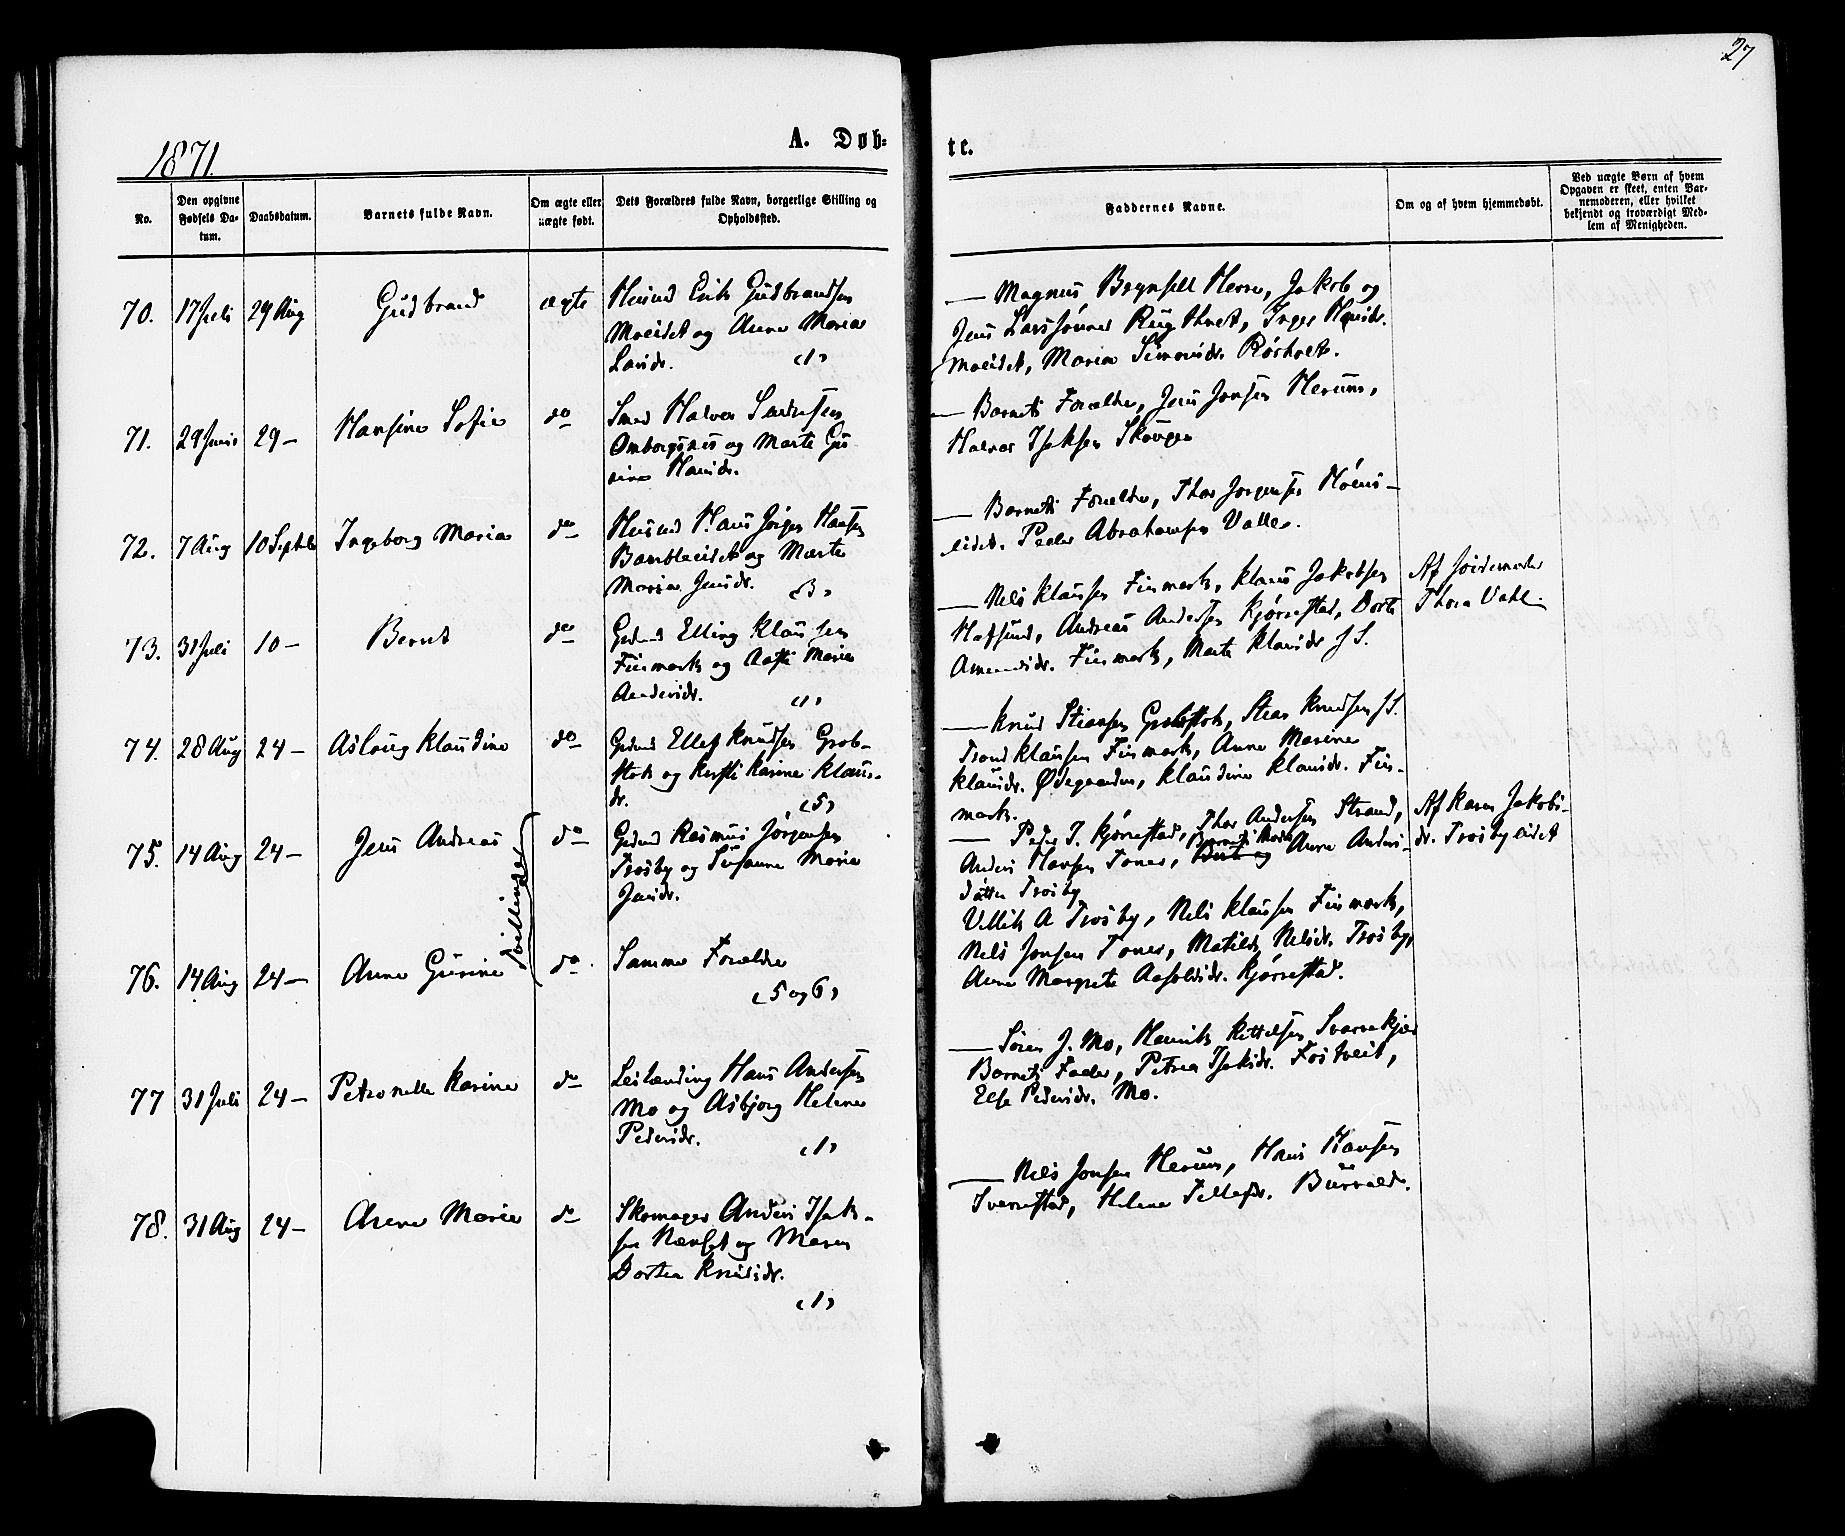 27
1871.
A. Døb-
te.
No.
Den opgivne Fødsels Da-
tum.
Daabsdatum.
Barnets fulde Navn.
Om ægte eller
uægte født.
Dets Forældres fulde Navn, borgerlige Stilling og
Opholdssted.
Faddernes Navne.
Om og af hvem hjemmedøbt.
Ved uægte Børn af hvem
Opgaven er skeet, enten Bar-
nemoderen, eller hvilket
bekjendt og troværdigt Med-
lem af Menigheden.
70. 17 Juli 29 Aug Gudbrand ægte
Husmd Erik Gudbrandsen
Moeidet og Anne Maria
Larsdr. (1)
— Magnus Brynsild Herre, Jakob og
Jens Larssønner Rugtvet, Inger Hansdr.
Moeidet, Maria Simonsdr. Rørholt.
71. 29 Juni 29 — Hansine Sofie do
Smed Halvor
Omborgsnes og Marte Gu-
rine Hansdr.
— Barnets Forældre, Jens Jonsen Herum,
Halvor Isaksen Skougen
72. 7 Aug 10 Septb Ingeborg Maria do
Husmd Hans Jørgen Hansen
Bambleeidet og Marte
Maria Jensdr. (3)
— Barnets Forældre, Thor Jørgensen
eidet. Peder Abrahamsen Valle.
73. 31 Juli 10 — Bernt do
Grdmd Elling Klausen
Finmark og Aaste Maria
Andersdr. (1)
— Nils Klausen Finmark, Klaus Jakobsen
Hafsund, Andreas Andersen Kjørrestad, Dorte
Amundsdr. Finmark, Marte Klausdr. f S.
Af Jordemoder
Thora Vahl.
74. 28 Aug 24 — Aslaug Klaudine do
Grdmd Ellef Knudsen Grob-
stok og Kirsti Karine Klaus-
dr. (5)
— Knud Stiansen Grobstok, Stian Knudsen f S.
Trond Klausen Finmark, Anne Marine
Klausdr. Ødegaarden, Klaudine Klausdr. Fin-
mark.
75. 14 Aug 24 — Jens Andreas do
Tvillinger
Grdmd Rasmus Jørgensen
Trosby og Susanne Maria
Jensdr.
— Peder T. Kjørrestad, Thor Andersen Strand,
Anders Hansen Tones, Barnets Moder Anne Anders-
datter Trosby
Af Karen Jakobs-
dr. Trosbyeidet
76. 14 Aug 24 — Anne Gurine do
Samme Forældre
(5 og 6)
Villik A Trosby, Nils Klausen Finmark,
Nils Jonsen Tones, Matilde Nilsdr. Trosby,
Anne Margrete Kjørrestad.
77 31 Juli 24 — Petronelle Karine do
Leilænding Hans Andersen
Mo og Asbjørg Helene
Pedersdr. (1)
— Søren J. Mo, Henrik Kittelsen Svarvekjær
Barnets Fader, Petrea Isaksdr. Fostveit,
Else Pedersdr. Mo.
78. 31 Aug 24 — Anne Maria do
Skomager Anders Isak-
sen og Maren
Dortea Knudsdr.
(1)
— Nils Jonsen Herum, Hans Hansen
Tverrestad, Helene Tellefsdr. Burvald.